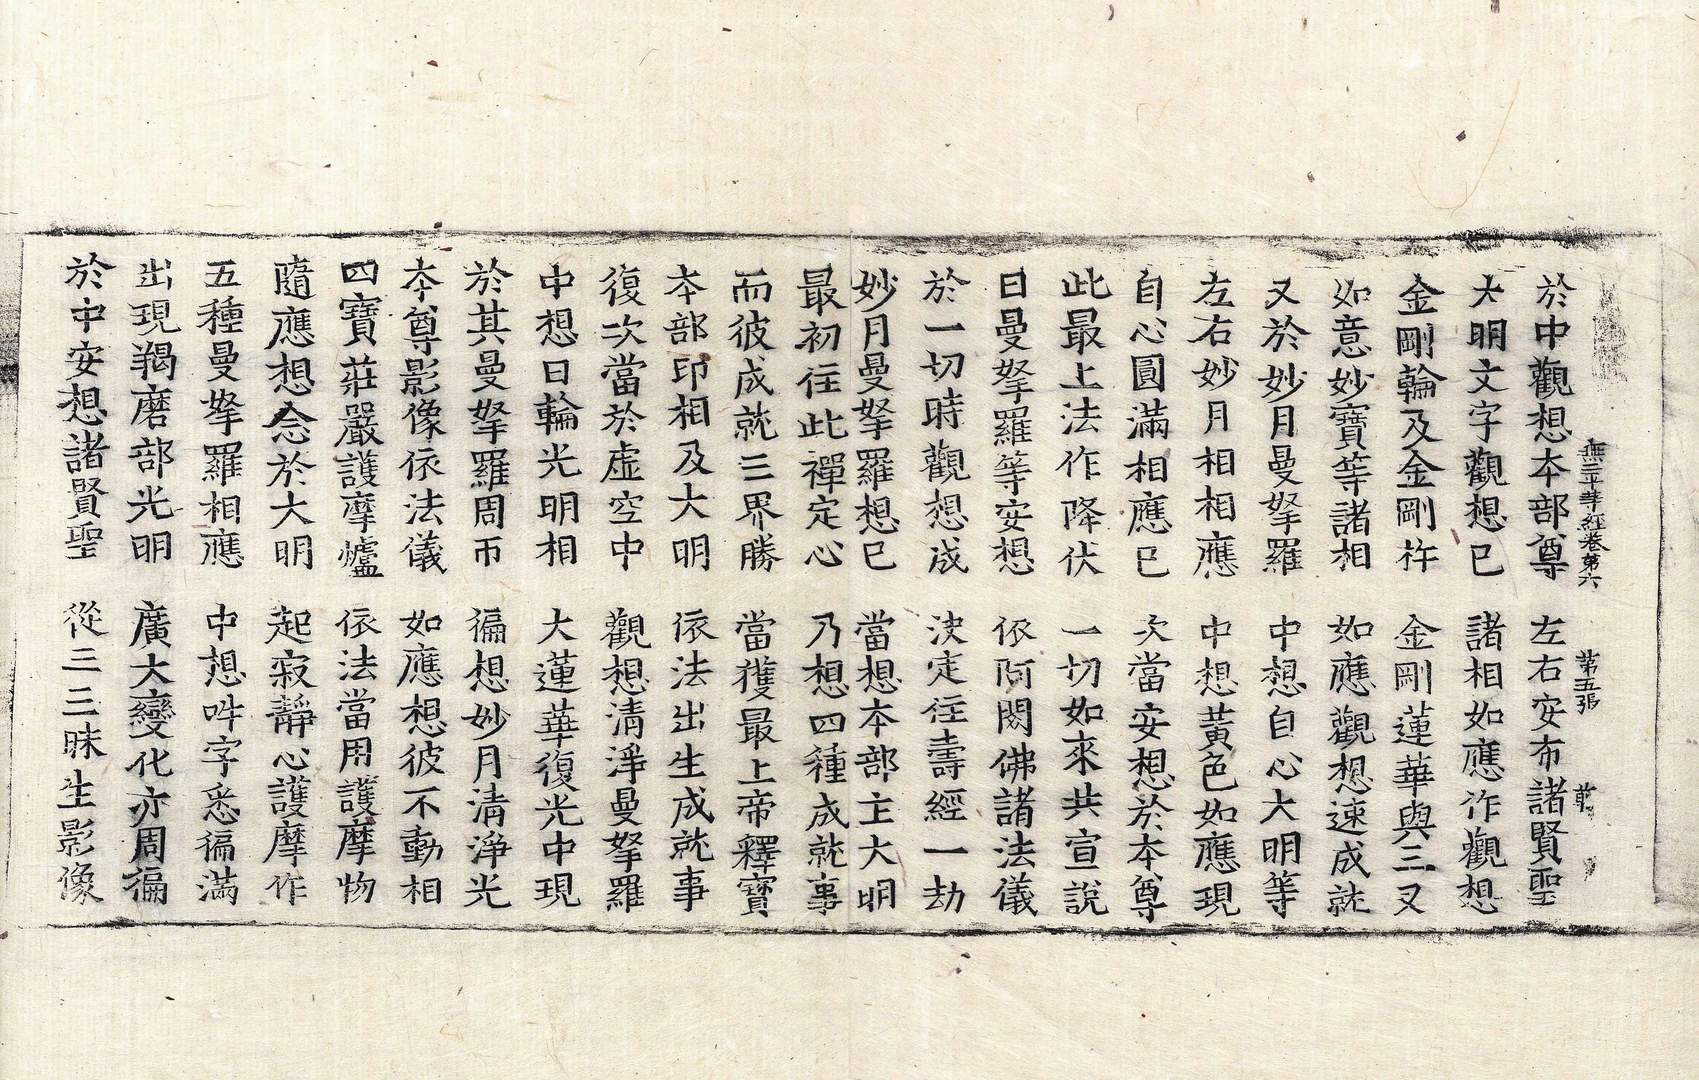 無二平等經卷第六　第五張
於中觀想本部尊　左右安布諸賢聖
大明文字觀想已　諸相如應作觀想
金剛輪及金剛杵　金剛蓮華與三叉
如意妙寶等諸相　如應觀想速成就
又於妙月曼拏羅　中想自心大明等
左右妙月相相應　中想黃色如應現
自心圓滿相應已　次當安想於本尊
此最上法作降伏　一切如來共宣說
日曼拏羅等安想　依阿閦佛諸法儀
於一切時觀想成　決定住壽經一劫
妙月曼拏羅想已　當想本部主大明
最初住此禪定心　乃想四種成就事
而彼成就三界勝　當獲最上帝釋寶
本部印相及大明　依法出生成就事
復次當於虛空中　觀想清淨曼拏羅
中想日輪光明相　大蓮華復光中現
於其曼拏羅周帀　徧想妙月清淨光
本尊影像依法儀　如應想彼不動相
四寶莊嚴護摩爐　依法當用護摩物
隨應想念於大明　起寂靜心護摩作
五種曼拏羅相應　中想吽字悉徧滿
出現羯磨部光明　廣大變化亦周徧
於中安想諸賢聖　從三三昧生影像